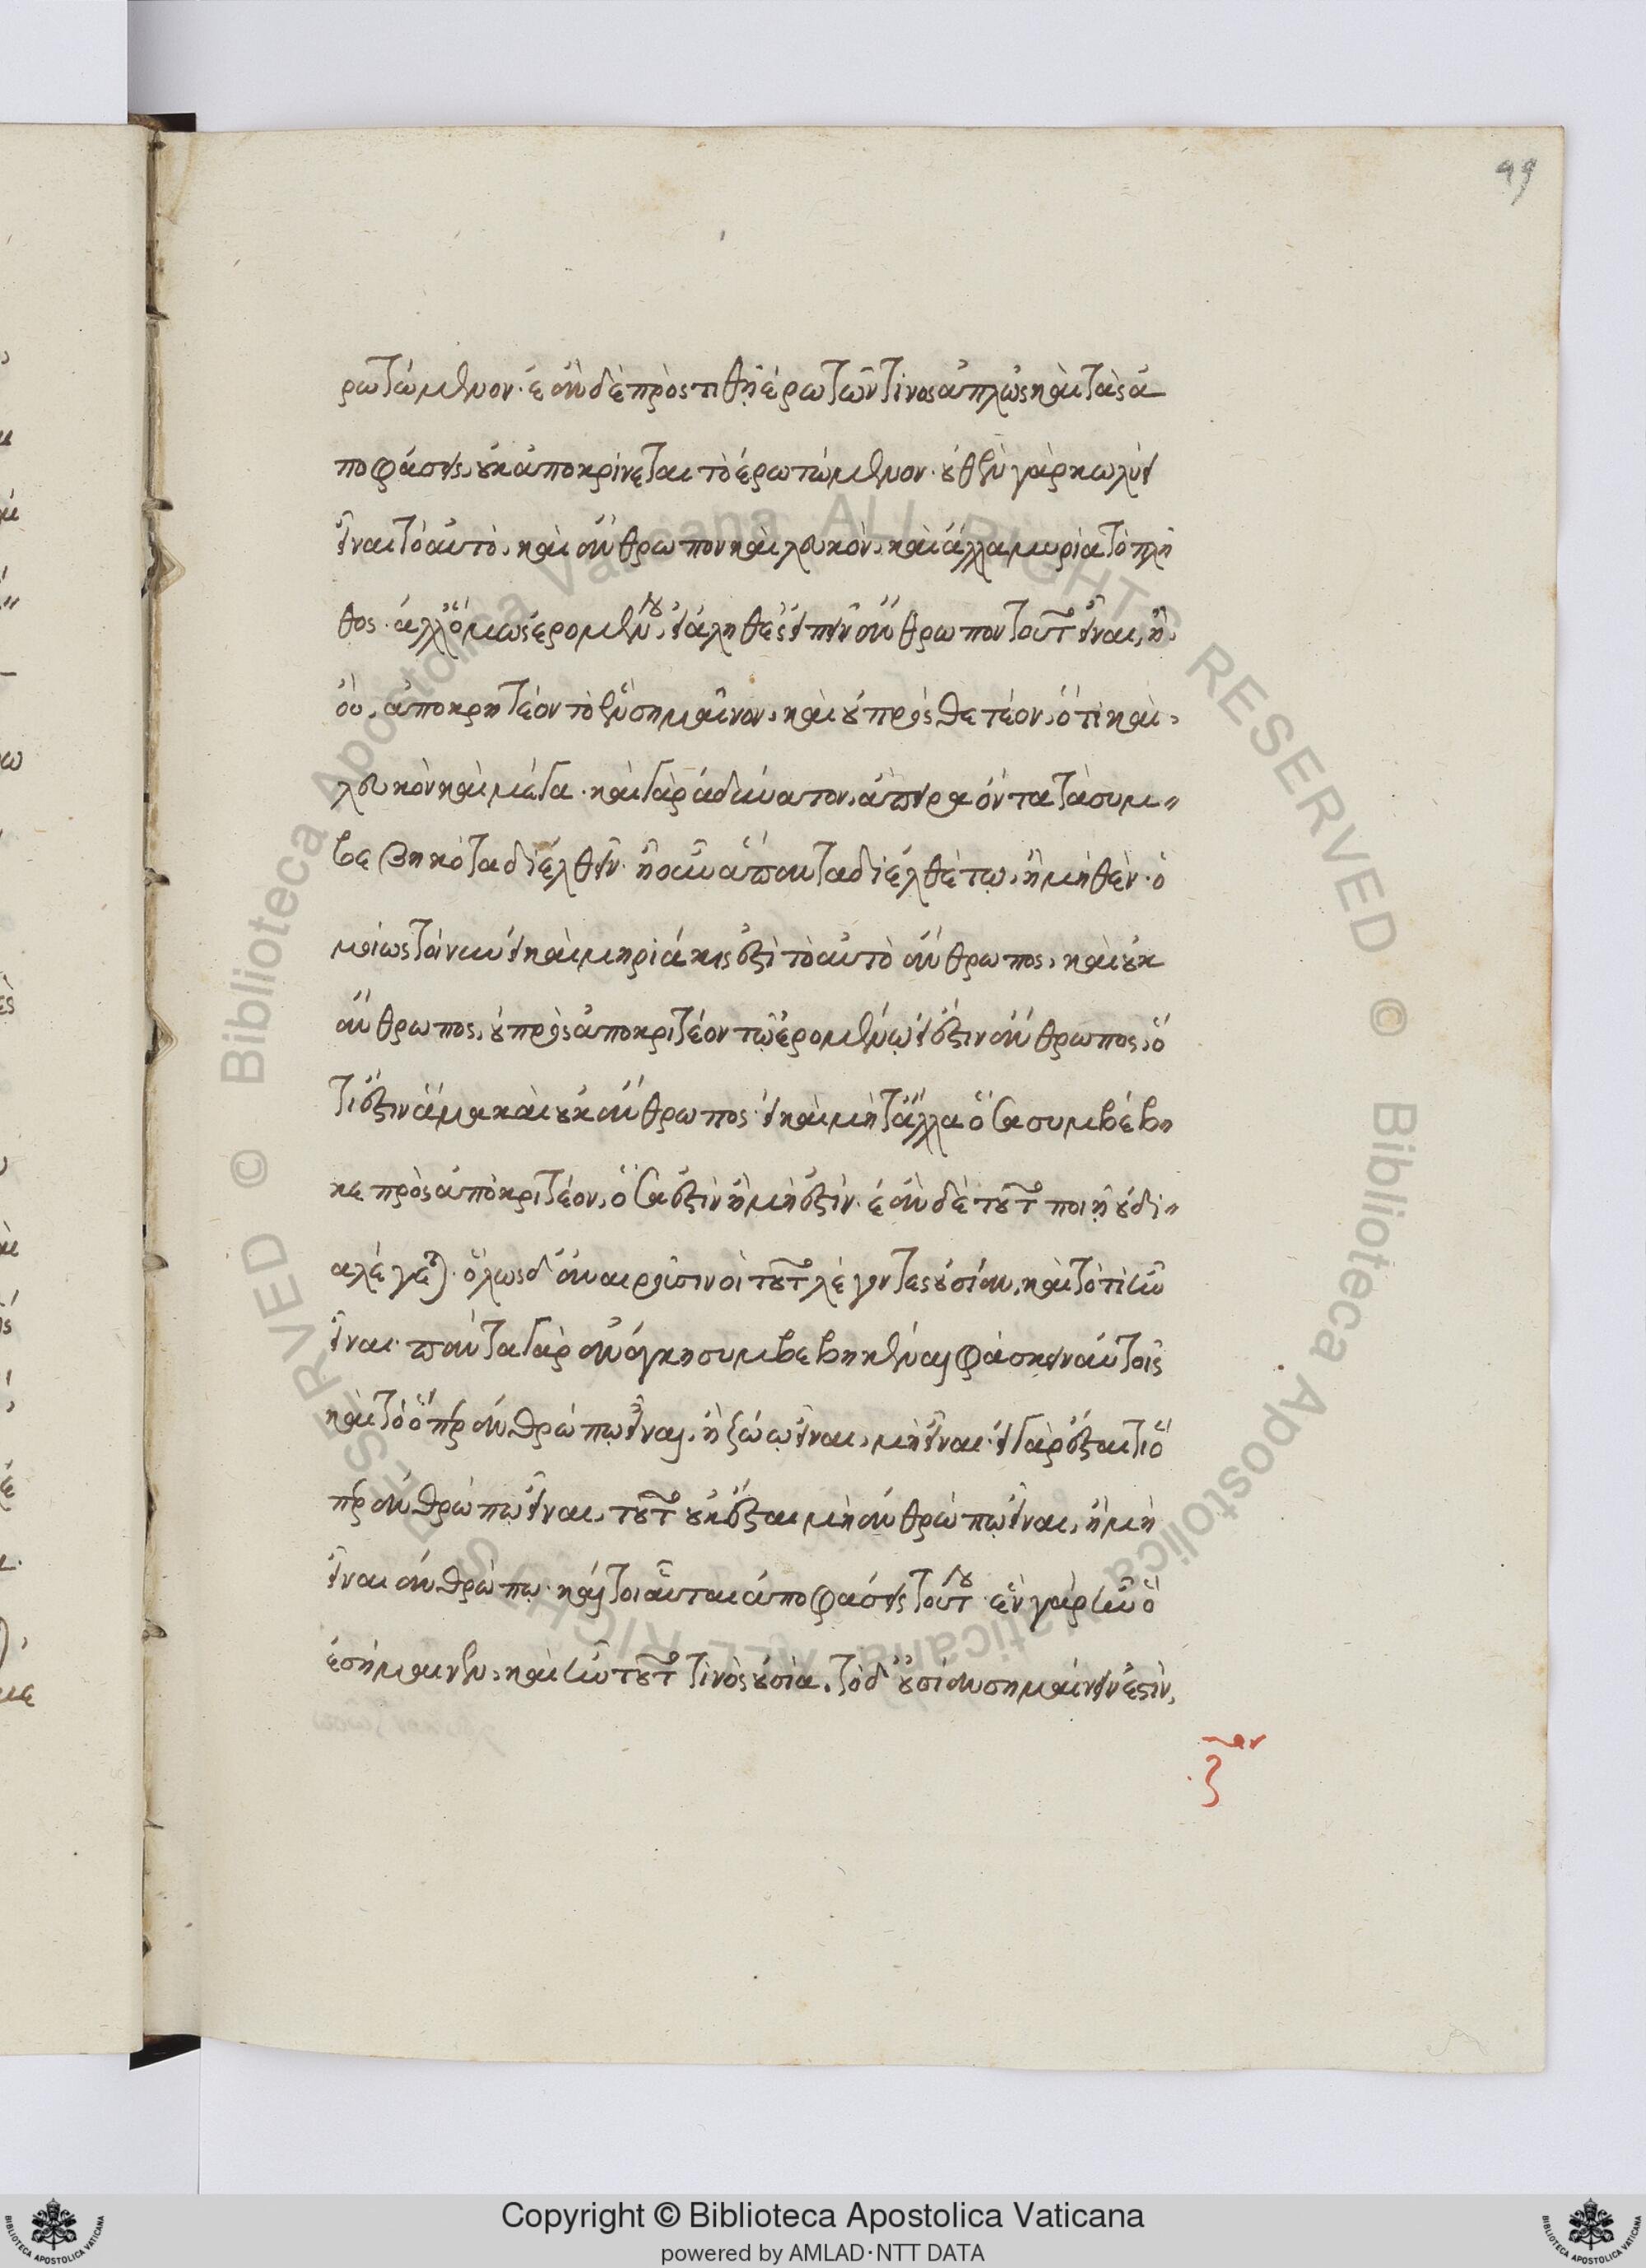 99
ρωτώμενον. ἐὰν δὲ πρὸστιθῇ ἐρωτῶντίνος ἀπλῶς καὶ τὰς ἀ
ποφάσεις, οὐκ ἀποκρίνεται τὸ ἐρωτώμενον. οὐθὲν γὰρ κωλύει
εἶναι τὸ αὐτὸ, καὶ ἄνθρωπον καὶ λευκὸν, καὶ ἄλλα μυρία τὸ πλῆ
θος. ἀλλ' ὅμως ἐρομένου, εἰ ἀληθὲς εἰπεῖν ἄνθρωπον τοῦτο εἶναι, ἢ,
οὐ, ἀποκρητέον τὸ ἓν σημαῖνον, καὶ οὐ προσθετέον, ὅτι καὶ,
λευκὸν καὶ μέγα. καὶ γὰρ ἀδύνατον, ἀπειρα όντα τὰ συμ
βεβηκότα διελθεῖν. ἢ οὖν ἅπαντα διελθέτω, ἢ μηθέν. ὁ
μοίως τοίνυν εἰ καὶ μηριάκις ἐστὶ τὸ αὐτὸ ἄνθρωπος, καὶ οὐκ
ἄνθρωπος, οὐ προσαποκριτέον τῷ ἐρομένῳ εἰ ἔστιν ἄνθρωπος, ὅ
τι ἔστιν ἅμα καὶ οὐκ ἄνθρωπος. εἰ καὶ μὴ τἄλλα ὅσα συμβέβη
κε πρὸσαπὸκριτέον, ὅσα ἐστὶν ἢ μὴ ἐστίν. ἐὰν δὲ τοῦτο ποιῇ οὐ δι
αλέγεται. ὅλως δ' ἀναιροῦσιν οἱ τοῦτο λέγοντες οὐσίαν, καὶ τὸ τὶ ἦν
εἶναι. πάντα γὰρ ἀνάγκη συμβεβηκέναι φάσκειν αὐτοῖς
καὶ τὸ ὅπερ ἀνθρώπῳ εἶναι, ἢ ζώῳ εἶναι, μὴ εἶναι. εἰ γὰρ ἔσται τι ὅ
περ ἀνθρώπῳ εἶναι, τοῦτο οὐκ ἔσται μὴ ἀνθρώπῳ εἶναι, ἢ μὴ
εἶναι ἀνθρώπῳ. καίτοι αὗται ἀποφάσεις τούτου. ἓν γὰρ ἦν ὃ
ἐσήμαινεν, καὶ ἦν τοῦτο τινὸς οὐσία. τὸ δ' οὐσίαν σημαίνειν ἐστὶν,